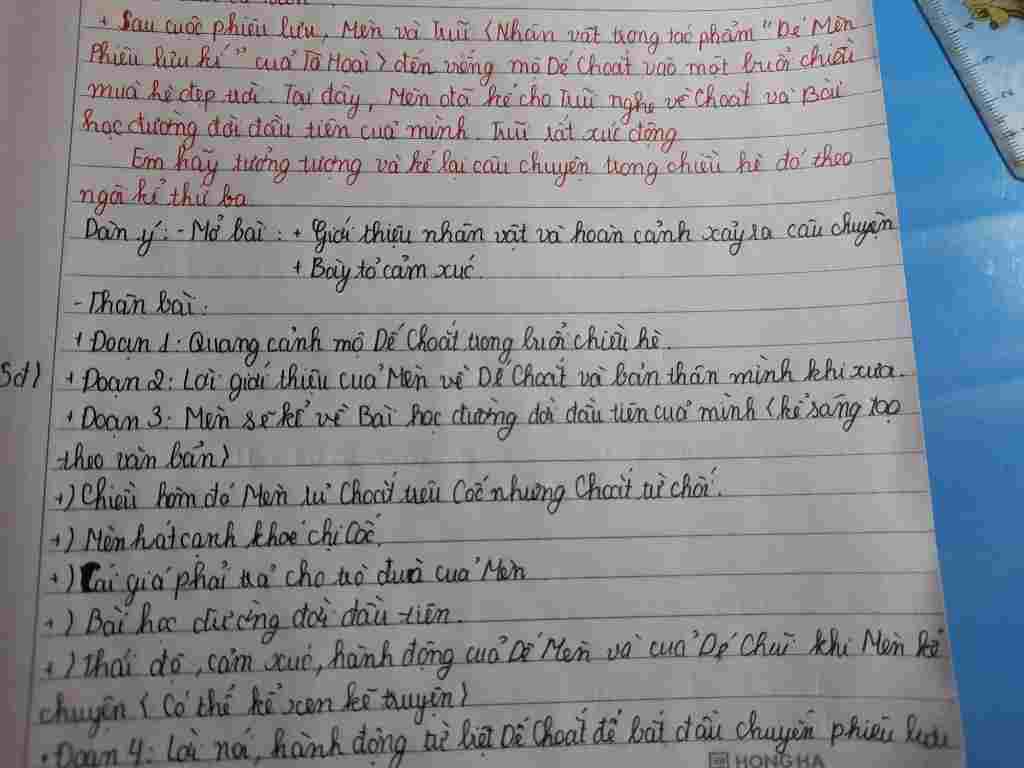 + Sau cuộc phiêu lưu, Mèn và Trũi (Nhân vật trong tác phẩm "Dế Mèn
Phiêu lưu kí" của Tô Hoài) đến viếng mộ Dế Choắt vào một buổi chiều
mùa hè đẹp trời. Tại đây, Mèn đã kể cho Trũi nghe về Choắt và Bài
học đường đời đầu tiên của mình. Trũi rất xúc động
Em hãy tưởng tượng và kể lại câu chuyện trong chiều hè đó theo
ngôi kể thứ ba
Dàn ý: - Mở bài: + Giới thiệu nhân vật và hoàn cảnh xảy ra câu chuyện
+ Bày tỏ cảm xúc.
- Thân bài:
+ Đoạn 1: Quang cảnh mộ Dế Choắt trong buổi chiều hè.
Sd) + Đoạn 2: Lời giới thiệu của Mèn về Dế Choắt và bản thân mình khi xưa.
+ Đoạn 3: Mèn sẽ kể về Bài học đường đời đầu tiên của mình (kể sáng tạo
theo văn bản)
+) Chiều hôm đó Mèn rủ Choắt trêu Cốc nhưng Choắt từ chối.
+) Mèn hát cạnh khoé chị Cốc.
+) Cái giá phải trả cho trò đùa của Mèn
+) Bài học đường đời đầu tiên.
+) Thái độ, cảm xúc, hành động của Dế Mèn và của Dế Chũi khi Mèn kể
chuyện (Có thể kể xen kẽ truyện)
+ Đoạn 4: Lời nói, hành động từ biệt Dế Choắt để bắt đầu chuyến phiêu lưu
HONG HA